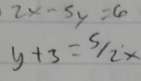 2x - 5y = 6
y + 3 = 5/2 x